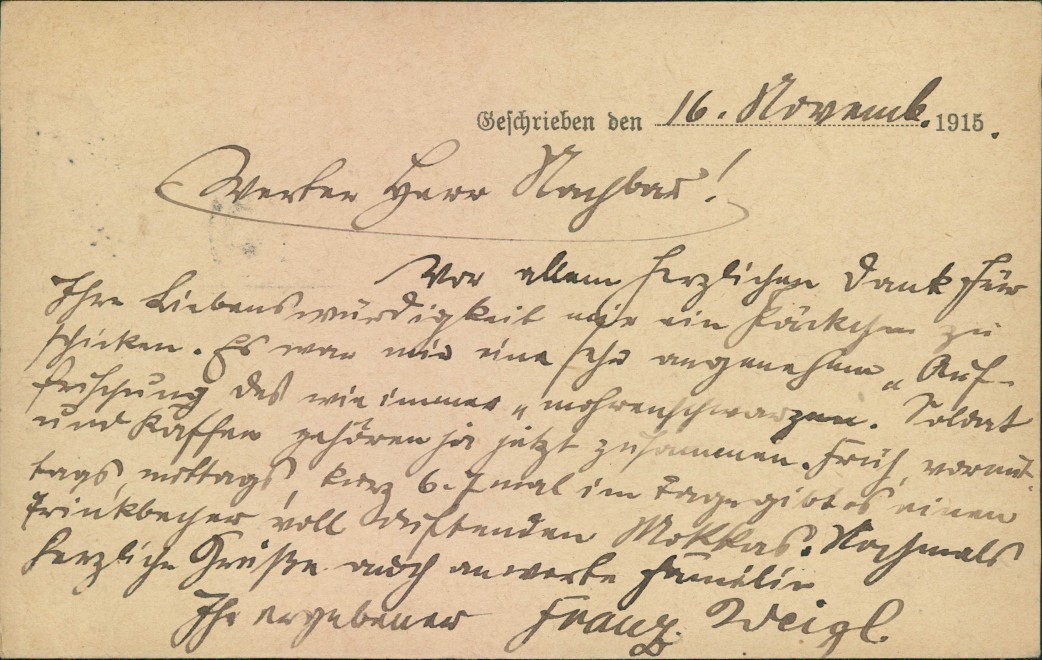 Geschrieben den 16. Novemb. 1915.
Werter Herr Nachbar!
Vor allem herzlichen Dank für
Ihre Liebenswürdigkeit mir ein Päckchen zu
schicken. Es war mir eine sehr angenehme „Auf-
frischung des wie immer „mohrenschwarzen. Soldat
und Kaffee gehören ja jetzt zusammen. Früh, vormit-
tags, mittags, kurz 6-7 mal im Tage gibt es einen
Trinkbecher voll duftenden Mokkas. Nochmals
herzliche Grüße auch an werte Familie
Ihr ergebener Franz Weigl.